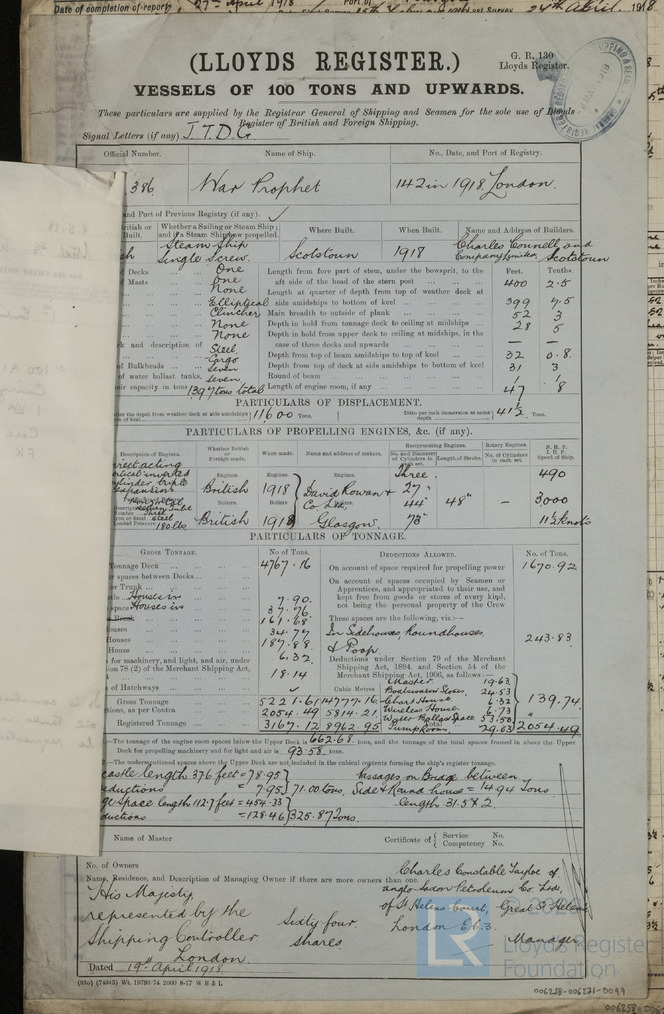 Date of completion of report 27th April 1918 Port of
24th April. 1918
(LLOYDS REGISTER.)
G. R. 130
Lloyds Register.
VESSELS OF 100 TONS AND UPWARDS.
These particulars are supplied by the Registrar General of Shipping and Seamen for the sole use of Lloyds
Register of British and Foreign Shipping.
Signal Letters (if any) J.T.D.G.
Official Number. Name of Ship. No., Date, and Port of Registry.
386 War Prophet 142 in 1918. London.
and Port of Previous Registry (if any).
Whether a Sailing or Steam Ship; and if a Steam Ship how propelled. Where Built. When Built. Name and Address of Builders.
Steam Ship Single Screw. Scotstoun 1918 Charles Connell and Company Limited, Scotstoun
Decks One Length from fore part of stem, under the bowsprit, to the Feet. Tenths
Masts One aft side of the head of the stern post 400 2.5
None Length at quarter of depth from top of weather deck at
Elliptical side amidships to bottom of keel 399 7.5
Clincher Main breadth to outside of plank 52 3
None Depth in hold from tonnage deck to ceiling at midships 28 5
None Depth in hold from upper deck to ceiling at midships, in the
and description of Steel case of three decks and upwards — —
Cargo Depth from top of beam amidships to top of keel 32 0.8
of Bulkheads Seven Depth from top of deck at side amidships to bottom of keel 31 3
of water ballast tanks, Seven Round of beam 1 1
their capacity in tons 1397 tons total Length of engine room, if any 47 8
PARTICULARS OF DISPLACEMENT.
the depth from weather deck at side amidships 11600 Tons. Ditto per inch immersion at same depth 41½ Tons.
PARTICULARS OF PROPELLING ENGINES, &c. (if any).
Description of Engines. Whether British or Foreign made. When made. Name and address of makers. Reciprocating Engines. Rotary Engines. N.H.P. I.H.P. Speed of Ship.
No. and Diameter of Cylinders in each set. Length of Stroke. No. of Cylinders in each set.
Direct acting Engines. Engines. Engines. Three 490
vertical inverted British 1918 David Rowan & 27"
cylinder triple expansion Boilers Boilers Co Ltd. 44" 48" — 3,000
180 lbs British 1918 Glasgow. 73" 11½ knots
PARTICULARS OF TONNAGE.
GROSS TONNAGE. No. of Tons. DEDUCTIONS ALLOWED. No. of Tons.
Tonnage Deck 4767.16 On account of space required for propelling power 1670.92
spaces between Decks
On account of spaces occupied by Seamen or
Apprentices, and appropriated to their use, and
kept free from goods or stores of every kind,
not being the personal property of the Crew
Trunk
Houses in 7.90.
space Houses in 37.76
161.68
These spaces are the following, viz.:—
houses 34.77 In Sidehouses, Roundhouses,
House 187.88 & Poop 243.83
for machinery, and light, and air, under 6.32 Deductions under Section 79 of the Merchant
section 78 (2) of the Merchant Shipping Act, Shipping Act, 1894, and Section 54 of the
18.14 Merchant Shipping Act, 1906, as follows:—
Master 19.63
of Hatchways Cubic Metres Boatswains Stores. 24.53
Gross Tonnage 5221.61 14777.16 Chart House. 6.32 139.74
Wireless House. 6.73
Deductions, as per Contra 2054.49 5814.21 Water Ballast Space 53.50
Registered Tonnage 3167.12 8962.95 Pump Room 29.03 Total 2054.49
—The tonnage of the engine room spaces below the Upper Deck is 662.68 tons, and the tonnage of the total spaces framed in above the Upper
Deck for propelling machinery and for light and air is 93.58 tons.
—The undermentioned spaces above the Upper Deck are not included in the cubical contents forming the ship's register tonnage.
castle length 37.6 feet = 78.95 Passages on Bridge between
deductions = 7.95 71.00 tons. Side & Round houses = 14.94 Tons
space length 112.7 feet = 454.33 length 31.5 x 2.
deductions = 128.46 325.87 Tons.
Name of Master Certificate of Service No.
Competency No.
No. of Owners
Name, Residence, and Description of Managing Owner if there are more owners than one.
His Majesty, represented by the Shipping Controller London.
Sixty four shares.
Charles Constable Tayloe of
Anglo Saxon Petroleum Co. Ltd,
of St Helens Court, Great St Helens
London E.C.3.
Manager
Dated 19th April 1918
(83o) (74343) Wt. 19793/74 2000 8-17 W B & L
LR
Lloyd's Register
Foundation
006258-006271-0099